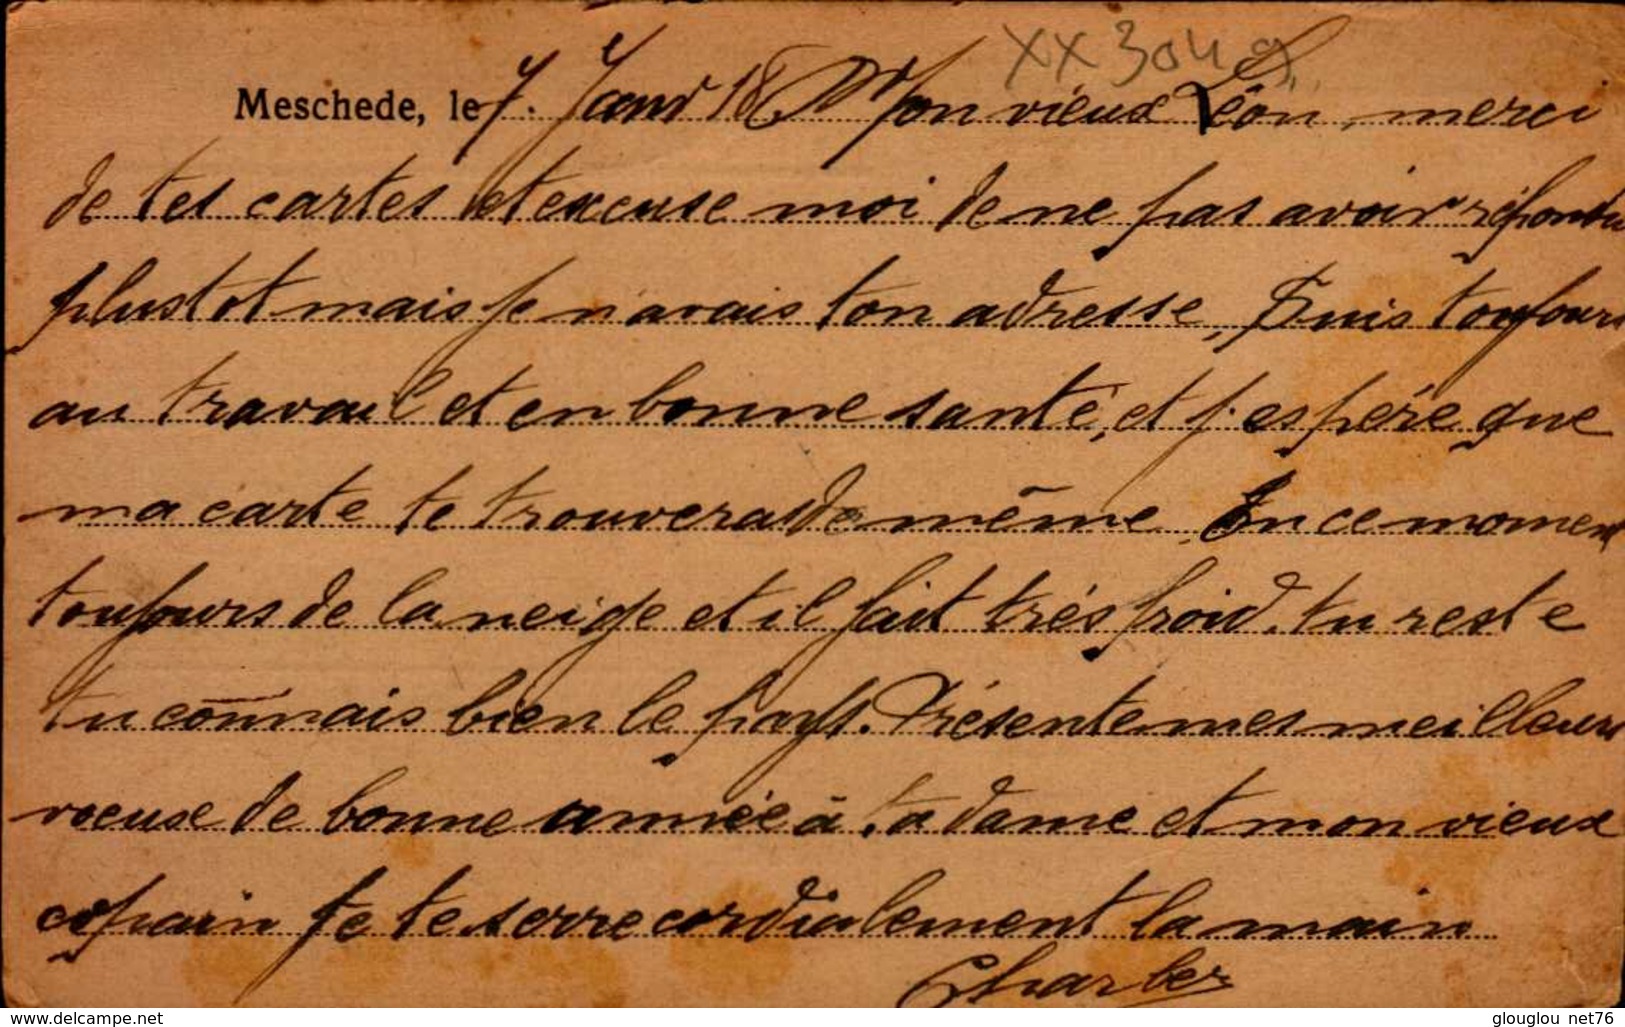 XX 3049
Meschede, le 7. Janv 18 Mon vieux Léon, merci
de tes cartes et excuse moi de ne pas avoir répondu
plustot mais je n'avais ton adresse, Suis toujours
au travail et en bonne santé, et j'espére que
ma carte te trouveras de même. En ce moment
toujours de la neige et il fait trés froid. tu reste
tu connais bien le pays. Présente mes meilleurs
voeuse de bonne année à ta dame et mon vieux
copain je te serre cordialement la main
Charles
www.delcampe.net
glouglou_net76